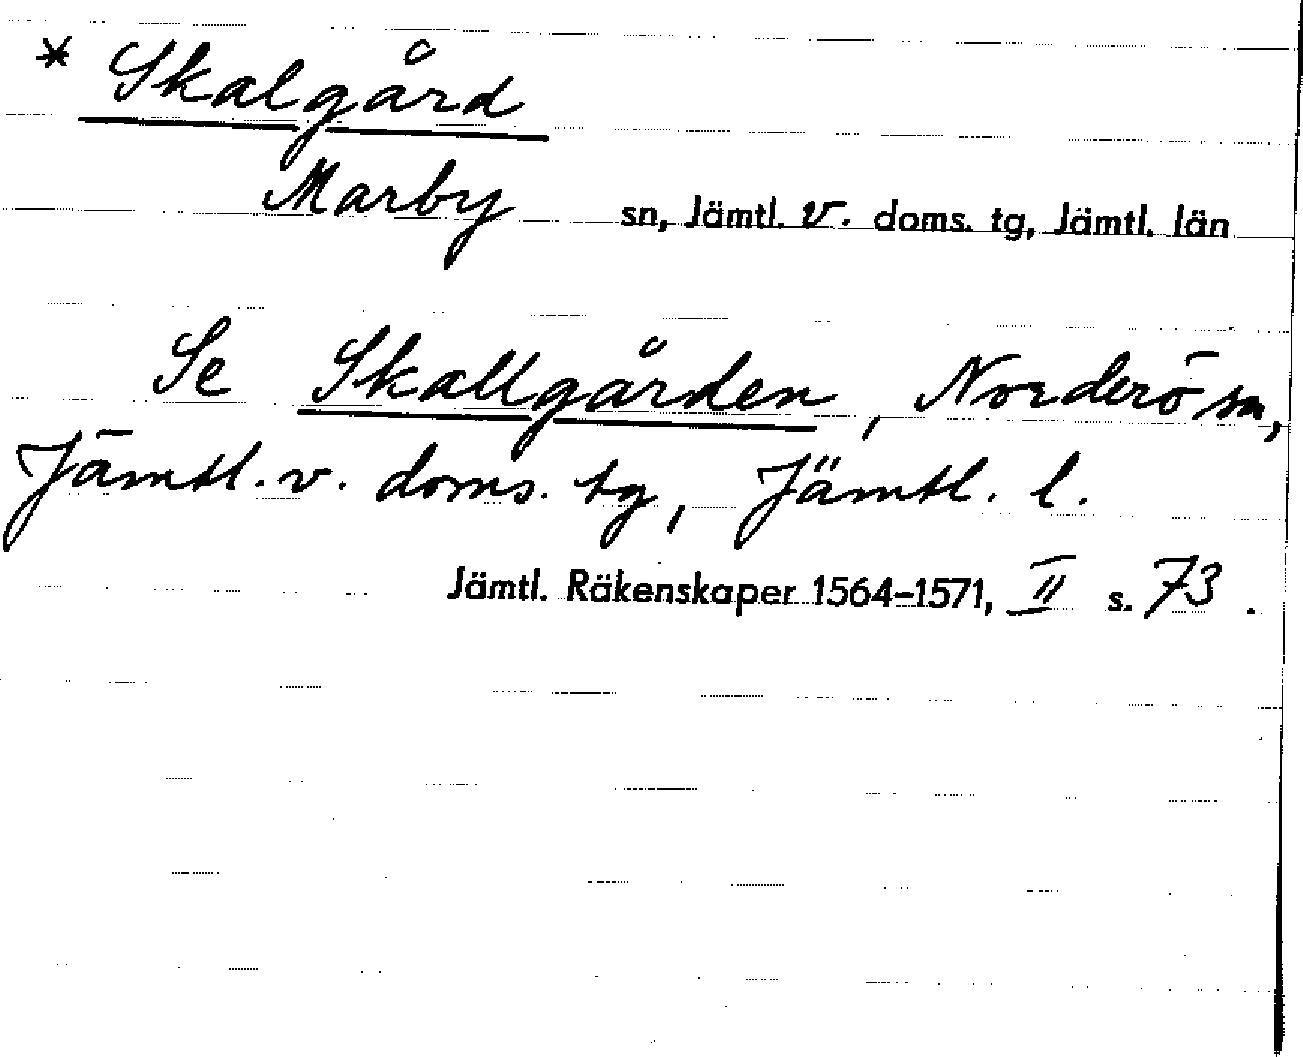 * Skalgård
Marby sn, Jämtl. v. doms. tg, Jämtl. län
Se Skallgården, Norderö sn,
Jämtl. v. doms. tg, Jämtl. l.
Jämtl. Räkenskaper 1564–1571, II s. 73.